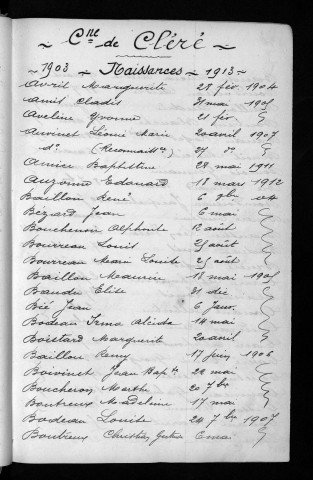 Cne de Cléré
1903 Naissances 1913
Avril Marguerite 28 fév 1904
Amit Cladis 31 mai 1905
Aveline Yvonne 21 fév
Auvinet Léonie Marie 20 avril 1907
do (Reconnaisce) 27 do
Amice Baptistine 28 mai 1911
Auzanne Edouard 18 mars 1912
Baillon René 6 9bre 04
Bézard Jean 6 mai
Bouchenoir Alphonse 12 août
Bourreau Louis 25 août
Bourreau Marie Louise 25 août
Baillon Maurice 18 mai 1905
Baudu Elise 31 déc
Bié Jean 6 Janv.
Bodeau Irma Alcida 14 mai
Boistard Marguerit 20 avril
Baillon Remy 17 juin 1906
Boivinet Jean Bapte 22 mai
Boucheron Marthe 20 7bre
Boutreux Madeleine 17 mai
Bodeau Louise 24 7bre 1907
Boutreux Christian 6 mai